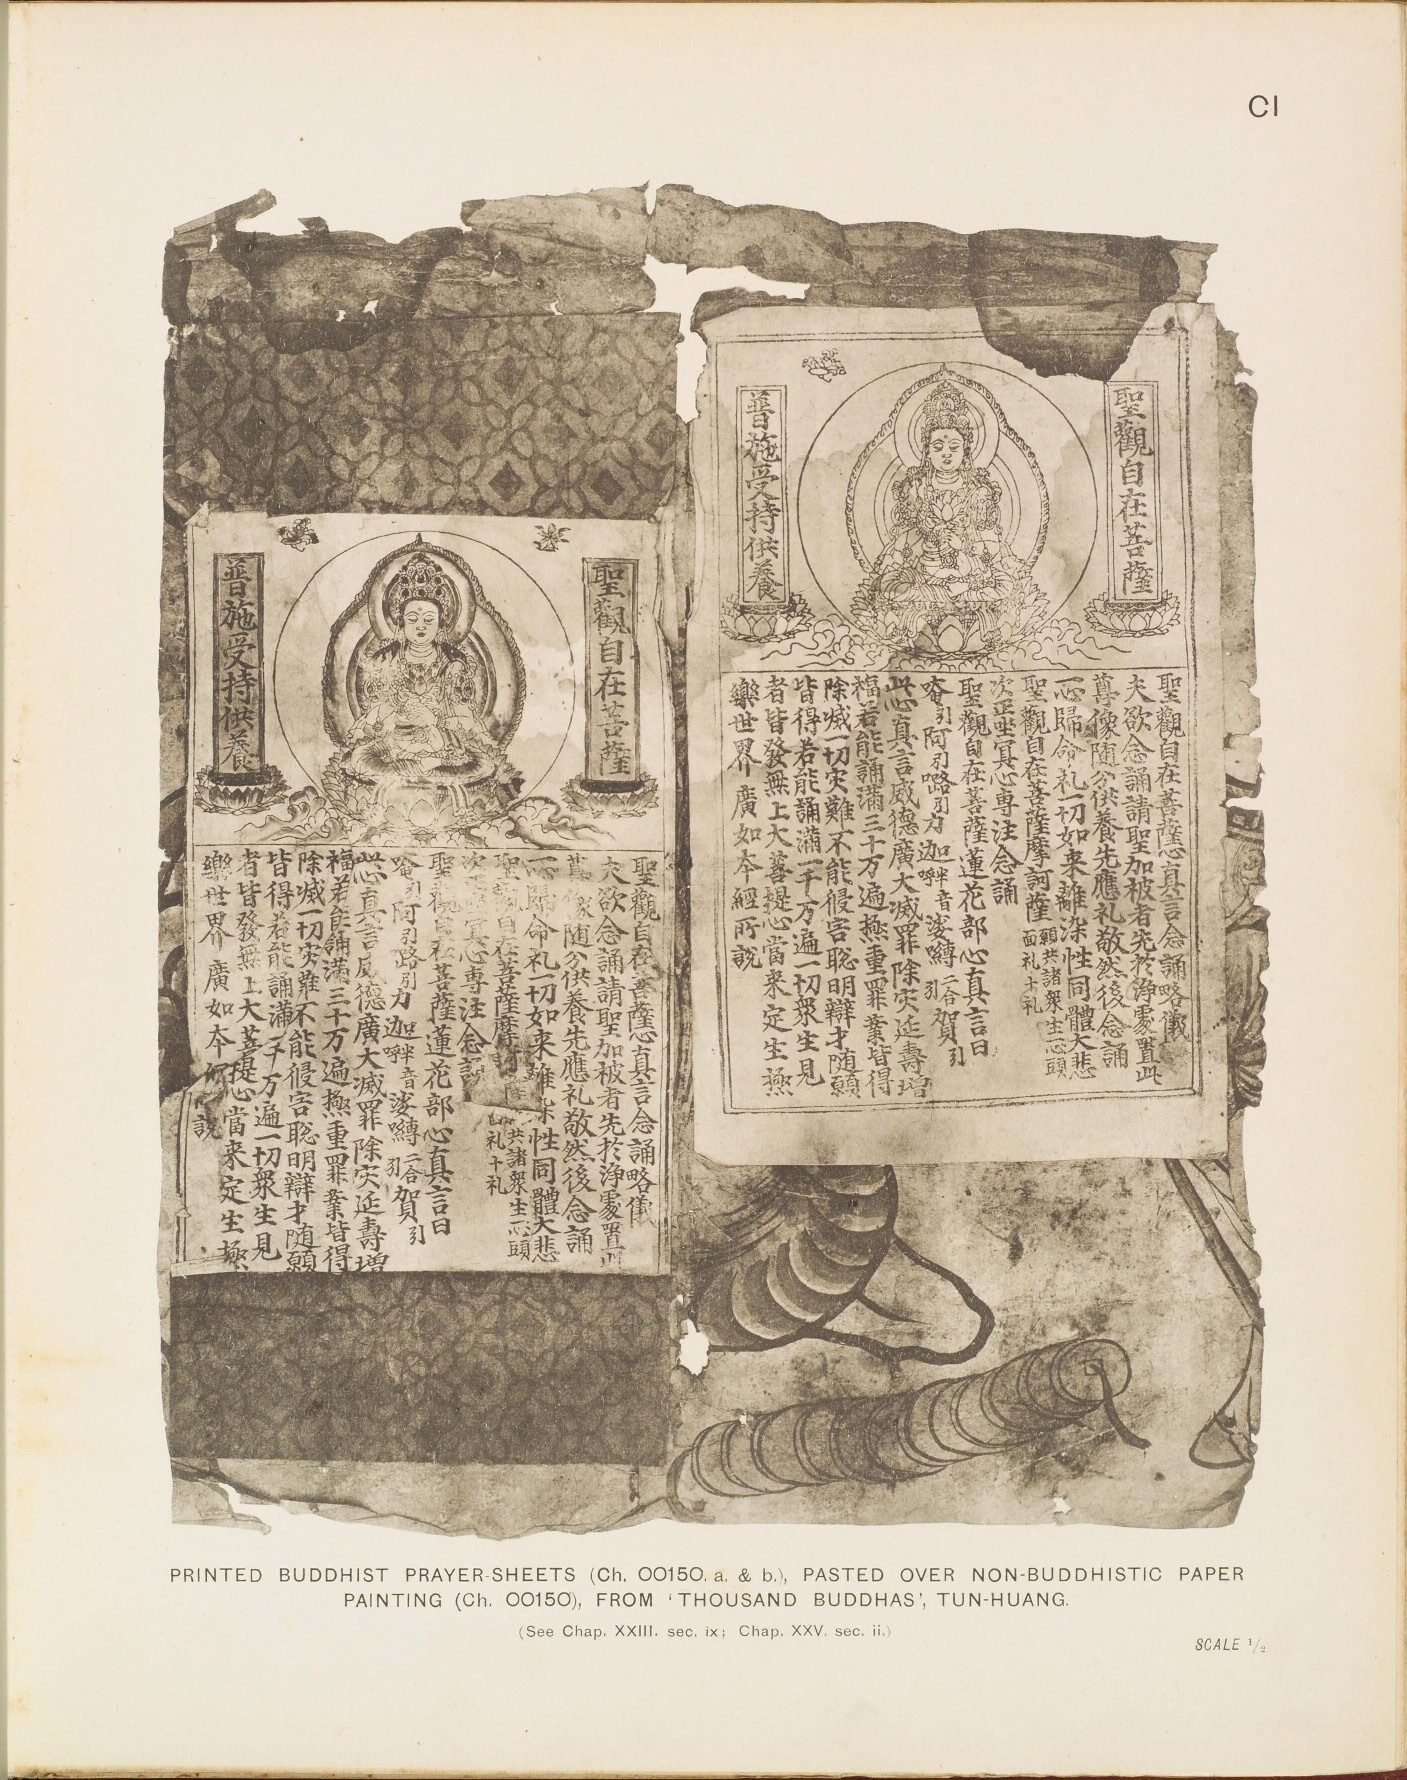 CI
聖觀自在菩薩
普施受持供養
聖觀自在菩薩心真言念誦略儀
夫欲念誦請聖加被者先於淨處置此
尊像随分供養先應礼敬然後念誦
一心歸命礼一切如来離染性同體大悲
聖觀自在菩薩摩訶薩 願共諸衆生一心頭面礼十礼
次正坐冥心専注念誦
聖觀自在菩薩蓮花部心真言曰
唵引阿引嚕引力 迦呼音娑嚩二合引賀引
此心真言威德廣大滅罪除灾延壽增
福若能誦滿三十万遍極重罪業皆得
除滅一切灾難不能侵害聡明辯才随願
皆得若能誦滿一千万遍一切衆生見
者皆發無上大菩提心當来定生極
樂世界 廣如夲經所説
聖觀自在菩薩
普施受持供養
聖觀自在菩薩心真言念誦略儀
夫欲念誦請聖加被者先於淨處置此
尊像随分供養先應礼敬然後念誦
一心歸命礼一切如来離染性同體大悲
聖觀自在菩薩摩訶 共諸衆生一心頭礼十礼
次正坐冥心専注念誦
聖觀自在菩薩蓮花部心真言曰
唵引阿引嚕引力 迦呼音娑嚩二合引賀引
此心真言威德廣大滅罪除灾延壽增
福若能誦滿三十万遍極重罪業皆得
除滅一切灾難不能侵害聡明辯才随願
皆得若能誦滿一千万遍一切衆生見
者皆發無上大菩提心當来定生極
樂世界 廣如夲 説
PRINTED BUDDHIST PRAYER-SHEETS (Ch. 00150. a. & b.), PASTED OVER NON-BUDDHISTIC PAPER
PAINTING (Ch. 00150), FROM ‘THOUSAND BUDDHAS’, TUN-HUANG.
(See Chap. XXIII. sec. ix; Chap. XXV. sec. ii.)
SCALE 1/2